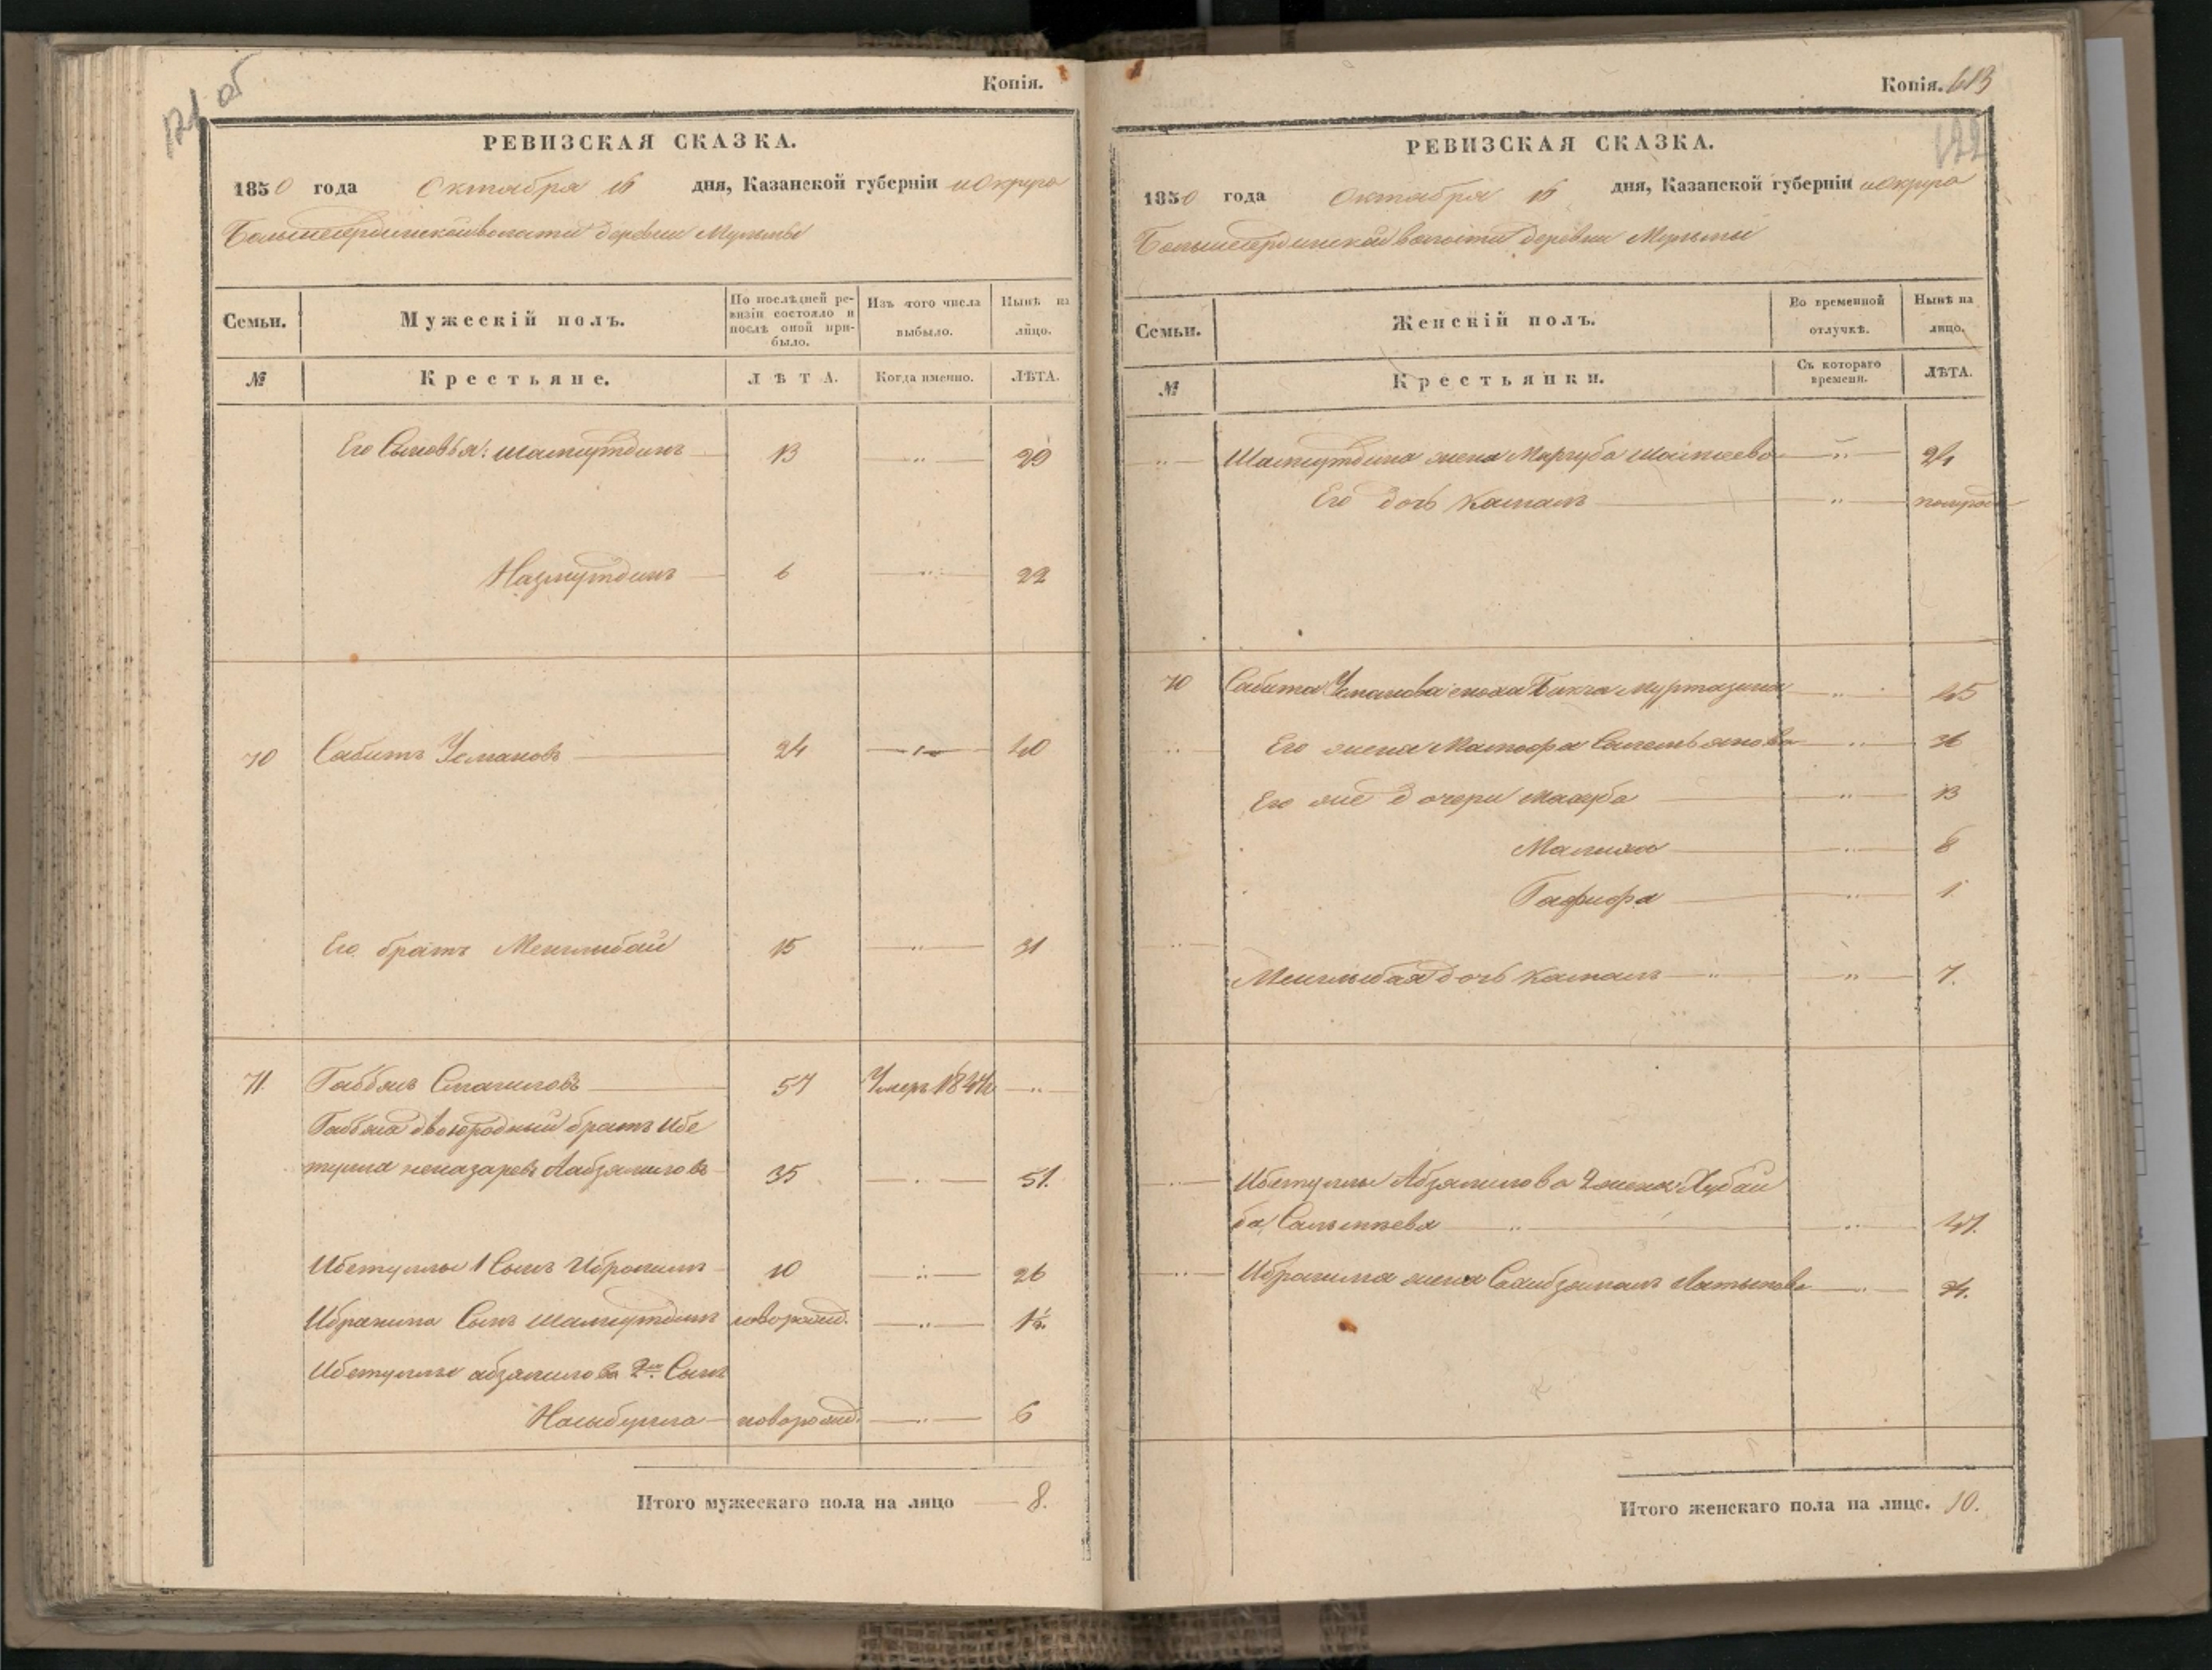 121 об
Копія.
РЕВИЗСКАЯ СКАЗКА.
1850 года Октября 16 дня, Казанской губерніи и Округа
волости деревни Мульмы
Семьи.
Мужескій полъ.
По послѣдней ре-
визіи состояло и
послѣ оной при-
было.
Изъ того числа
выбыло.
Нынѣ на
лицо.
№
Крестьяне.
ЛѢТА.
Когда именно.
ЛѢТА.
Его Сыновья: Шамсутдинъ 13 29
Назмутдинъ 6 22
70 Сабитъ Усмановъ 24 40
Его братъ Менглибай 15 31
71. Смагиловъ 57 Умеръ 1844 г
двоюродный братъ Ибе
тулла 35 51.
Ибетуллы 1 Сынъ Ибрагимъ 10 26
Ибрагима Сынъ Шамсутдинъ новорожд.
Ибетуллы абзялилова 2й Сынъ
Насыбулла новорожд. 6
Итого мужескаго пола на лицо 8.
Копія. 613
122
РЕВИЗСКАЯ СКАЗКА.
1850 года Октября 16 дня, Казанской губерніи и Округа
волости деревни Мульмы
Семьи.
Женскій полъ.
Во временной
отлучкѣ.
Нынѣ на
лицо.
№
Крестьянки.
Съ котораго
времени.
ЛѢТА.
Шамсутдина жена Маргуба 24
Его дочь Камалъ полгода
70 Сабита Усманова сноха Бикча Муртазина 45
Его жена 36
Его же дочери Махуба 13
8
Гафифа 1
Менглибая дочь Камалъ 7.
Ибетуллы Абзялилова 2 жена Хубай
ба 47.
Ибрагима жена Латыпова 24.
Итого женскаго пола на лице. 10.